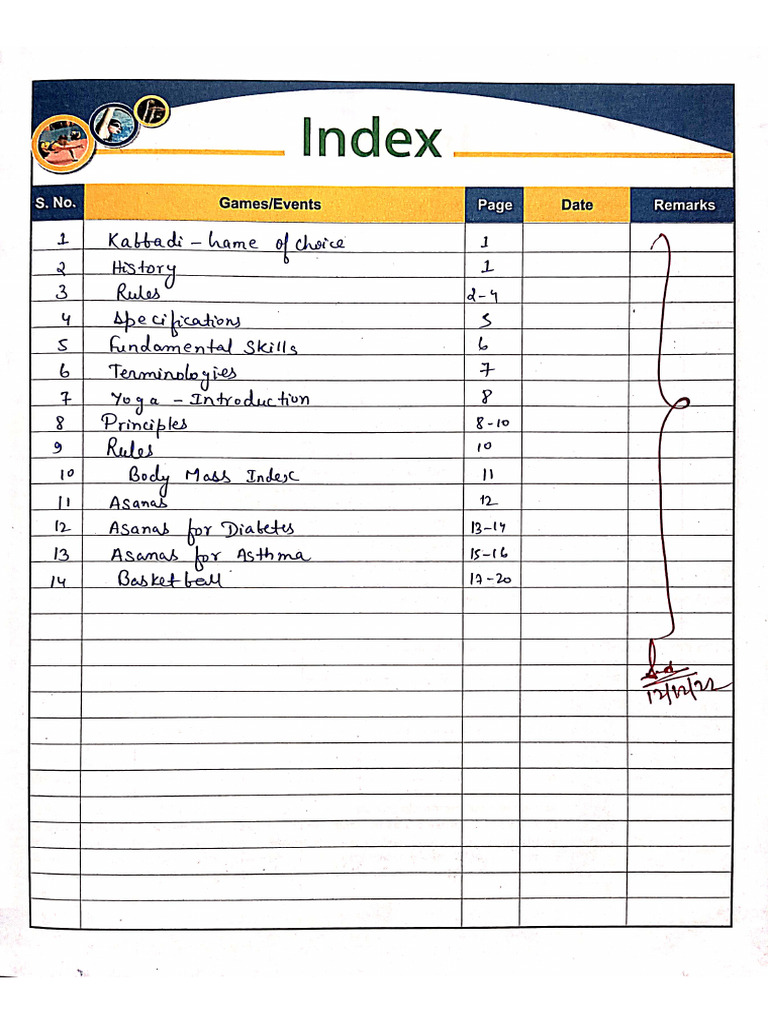 Index
S. No. Games/Events Page Date Remarks
1 Kabbadi - Game of choice 1
2 History 1
3 Rules 2-4
4 Specifications 5
5 Fundamental Skills 6
6 Terminologies 7
7 Yoga - Introduction 8
8 Principles 8-10
9 Rules 10
10 Body Mass Index 11
11 Asanas 12
12 Asanas for Diabetes 13-14
13 Asanas for Asthma 15-16
14 Basketball 17-20
12/12/22